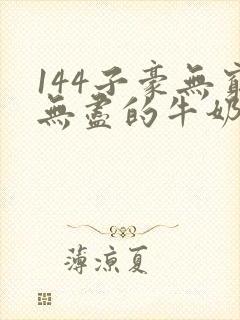 144子豪無窮
無盡的牛奶
薄涼夏